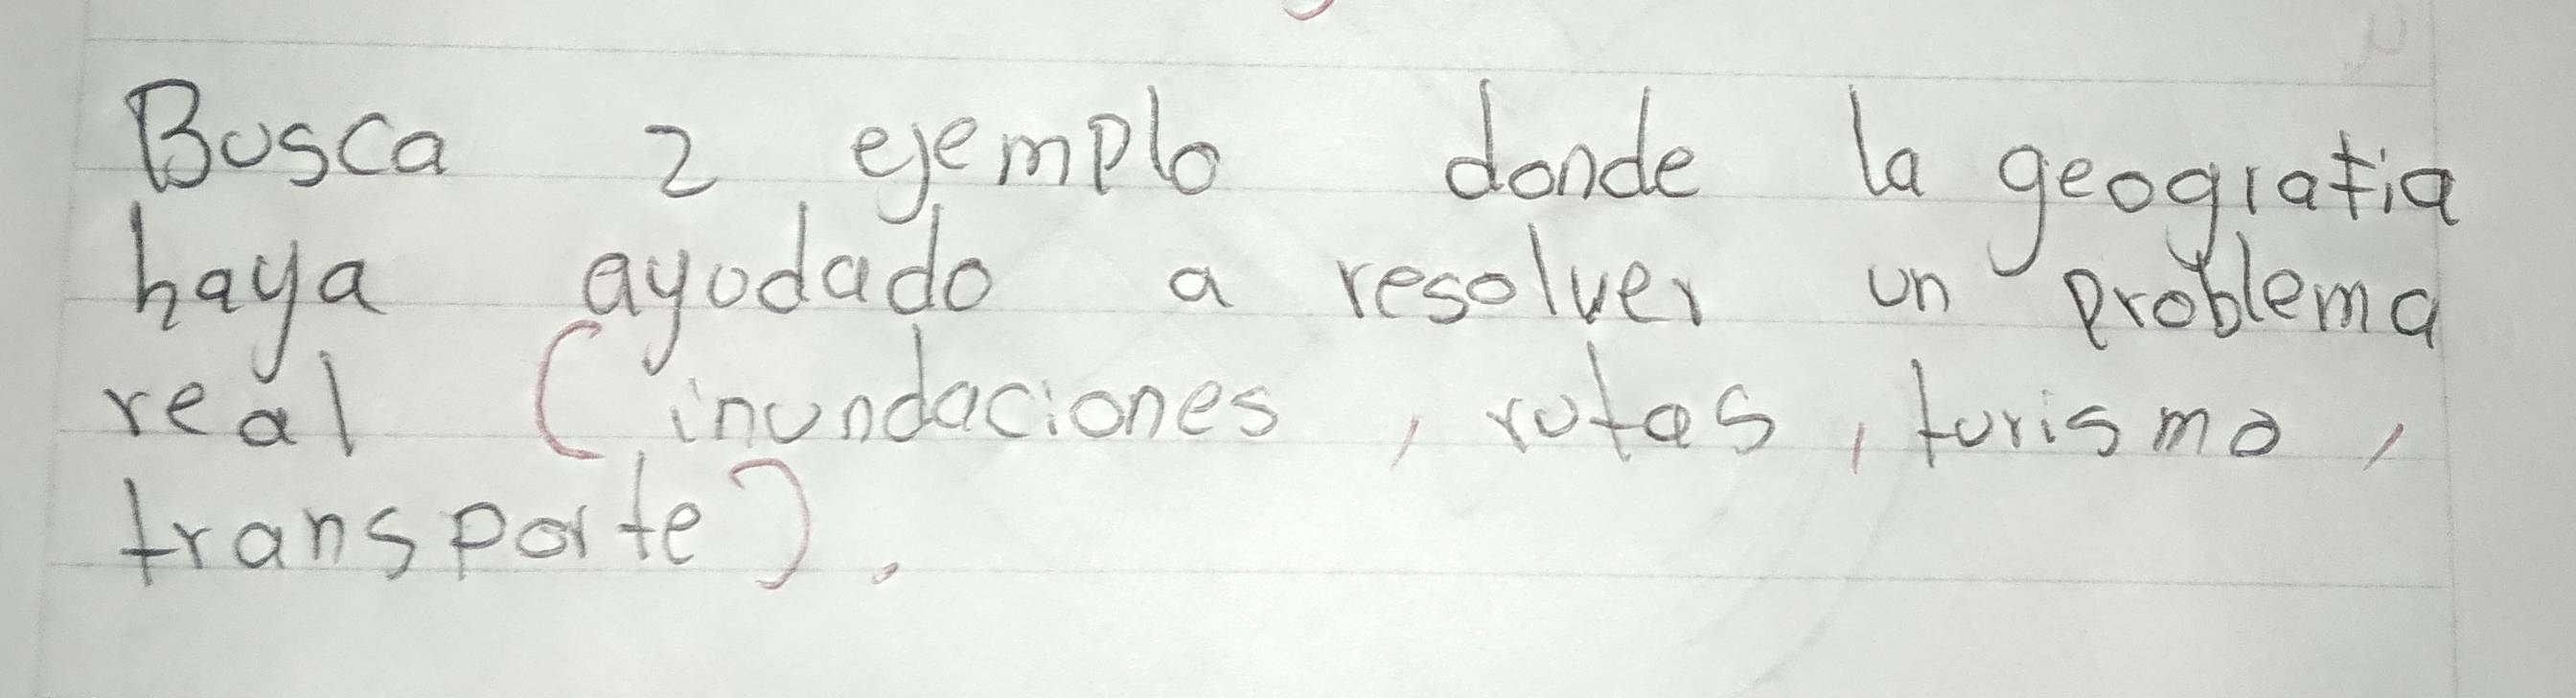 Busca 2 ejemplo donde la geografia
haya ayudado a resolver un problema
real (inundaciones, rutas, turismo,
transporte).